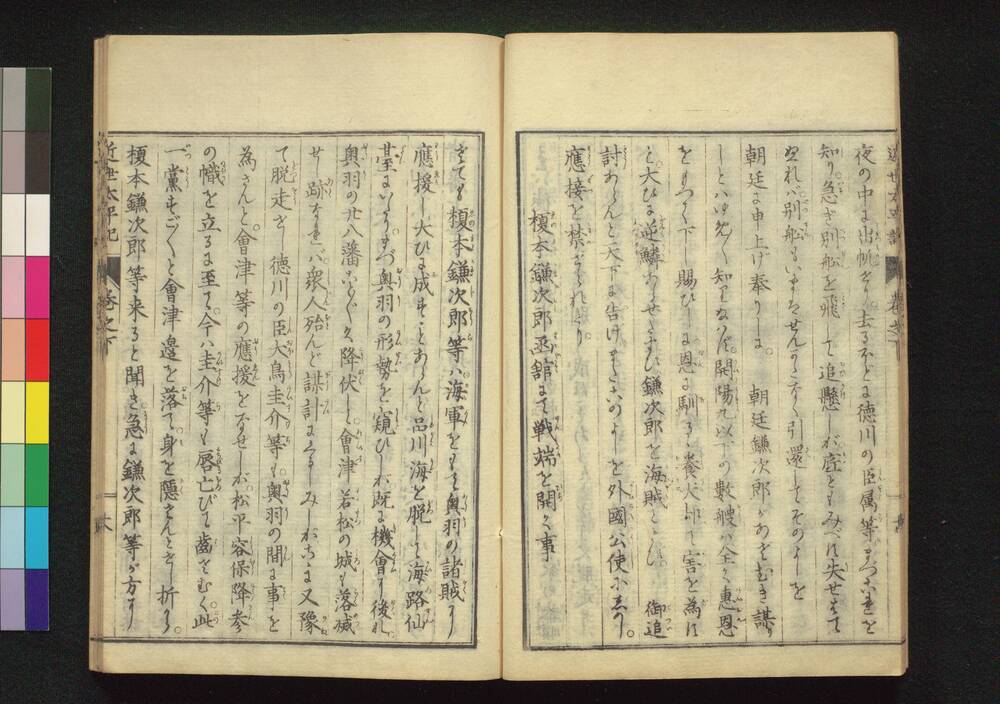 夜の中に出帆をし去るほどに徳川の臣属等まづこれを
知り急ぎ別船を飛して追懸しが
ぬれバ別船もいまはせんかたなく引還してそのよしを
朝廷に申上げ奉りしに 朝廷鎌次郎があざむき謀
しとハゆめ〱知り給ハず開陽丸以下の数艘ハ全く惠恩
をもつて下し賜ひしに恩に馴るゝ養犬却て害を為に
と大ひに逆鱗あらせ給ひ鎌次郎を海賊と 御追
討あらんと天下に告げ そのよしを外國公使に
應接を禁ぜられたり
榎本鎌次郎函舘にて戦端を開く事
さても榎本鎌次郎等ハ海軍をもて奥羽の諸賊に
應援し大ひに成すことあらんと品川海を脱して海路仙
臺にいたりまづ奥羽の形勢を窺ひしが既に機會に後れ
奥羽の廿八藩ことごとく降伏し會津若松の城も落城
せし跡なれバ衆人殆んど謀計にくるしみしがこゝに又豫
て脱走せし徳川の臣大鳥圭介等も奥羽の間に事を
為さんと會津等の應援をなせしが松平容保降参
の幟を立るに至て今ハ圭介等も唇亡びて齒さむく此
一黨すごすごと會津邊を落て身を隠さんとせし折から
榎本鎌次郎等来ると聞き急に鎌次郎等が方に
近世太平記 巻之下